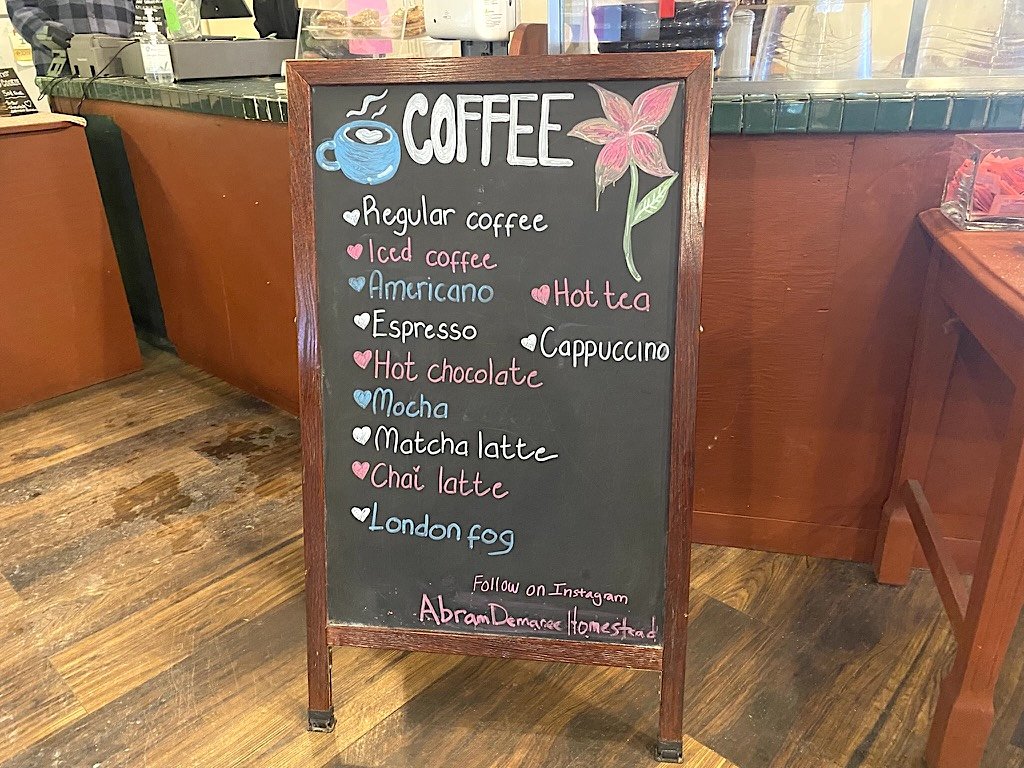 COFFEE
Regular coffee
Iced coffee
Americano
Hot tea
Espresso
Cappuccino
Hot chocolate
Mocha
Matcha latte
Chai latte
London fog
Follow on Instagram
AbramDemareeHomestead